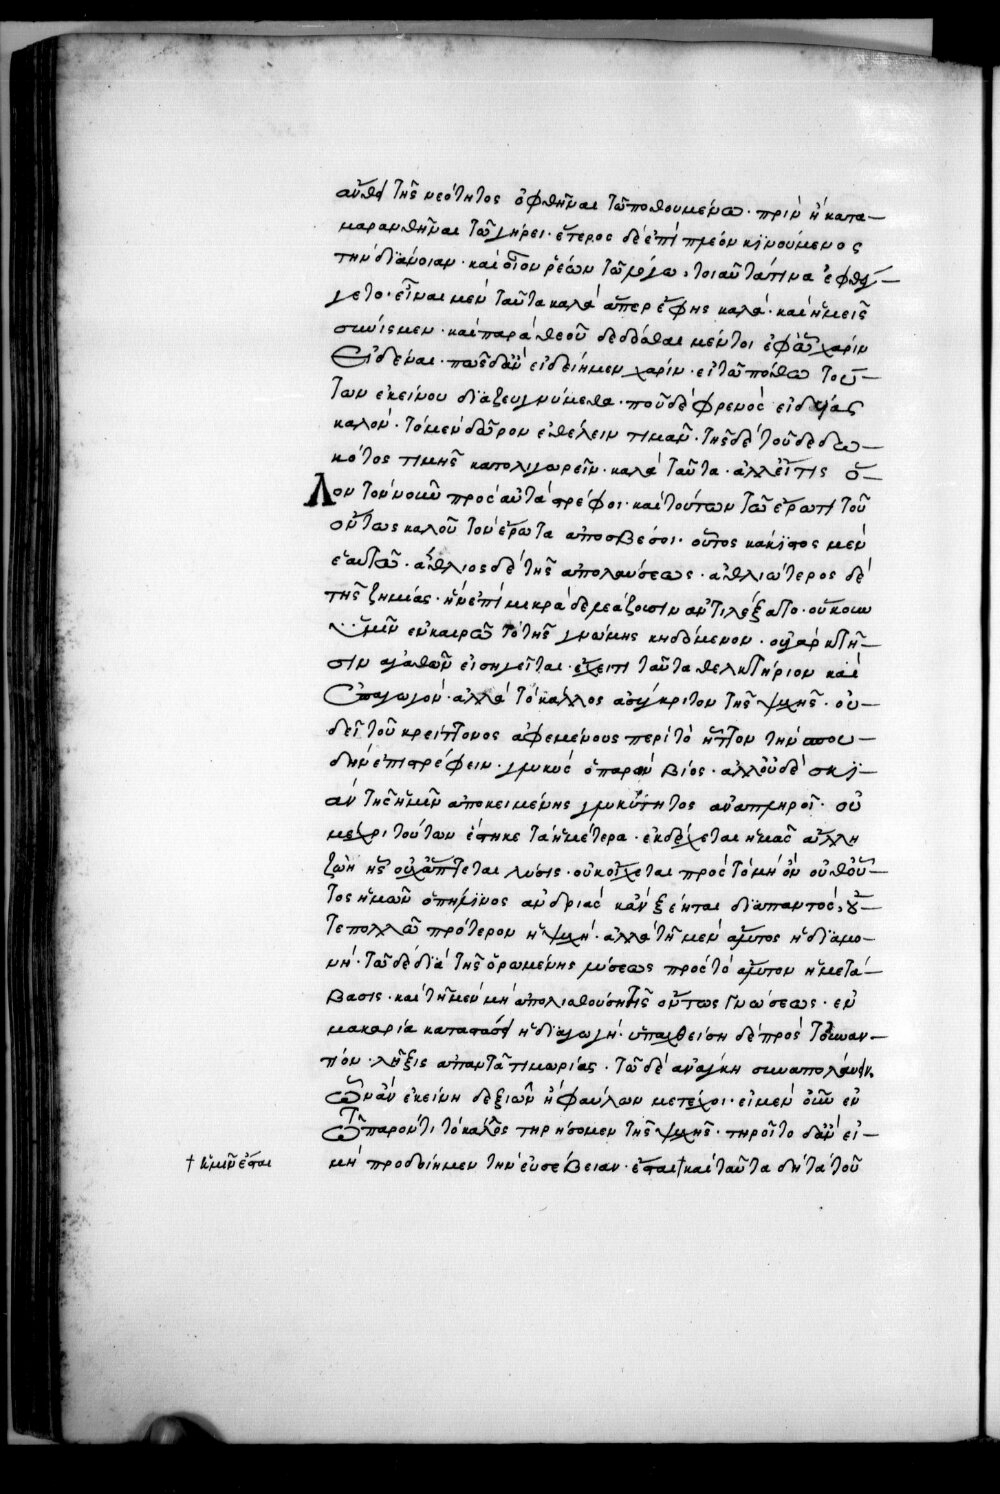 αὖθι τῆς νεότητος ὀφθῆναι τῶ ποθουμένω· πρὶν ἢ κατα-
μαρανθῆναι τῶ γήρει· ἕτερος δὲ ἐπὶ πλέον κινούμενος
τὴν διάνοιαν· καὶ οἷον ῥέων τῶ λόγω, τοιαῦτά τινα ἐφθέγ-
γετο· εἶναι μὲν ταῦτα καλὰ ἅπερ ἔφης καλά· καὶ ἡμεῖς
σύνισμεν· καὶ παρὰ θεοῦ δεδόσθαι μέντοι ἐφ' ὧ χάριν
εἰδέναι· πῶς δ' ἂν εἰδείημεν χάριν· εἰ τῶ πόθω τού-
των ἐκείνου διαζευγνύμεθα· ποῦ δὲ φρενὸς εἰδυίας
καλόν· τὸ μὲν δῶρον ἐθέλειν τιμᾶν· τῆς δὲ τοῦ δεδω-
κότος τιμῆς κατολιγωρεῖν· καλὰ ταῦτα· ἀλλ' εἴ τις ὅ-
λον τὸν νοῦν πρὸς αὐτὰ στρέφοι· καὶ τούτων τῶ ἔρωτι τοῦ
ὄντως καλοῦ τὸν ἔρωτα ἀποσβέσοι· οὗτος κάκιστος μὲν
ἑαυτῶ· ἄθλιος δὲ τῆς ἀπολαύσεως· ἀθλιώτερος δὲ
τῆς ζημίας· ἣν ἐπὶ μικρᾶ δελεάζουσιν ἀντιλέξατο· οὔκουν
ἡμῖν ἐν καιρῶ τὸ τῆς γνώμης κηδόμενον· οὐ γὰρ κτῆ-
σιν ἀγαθῶν εἰσηγεῖται· ἔχει τι ταῦτα θελκτήριον καὶ
ἐπαγωγόν· ἀλλὰ τὸ κάλλος ἀσύγκριτον τῆς ψυχῆς· οὐ-
δεῖ τοῦ κρείττονος ἀφεμένους περὶ τὸ ἧττον τὴν σπου-
δὴν ἐπιστρέφειν· γλυκὺς ὁ παρὼν βίος· ἀλλ' οὐδὲ σκι-
ὰν τῆς ἡμῖν ἀποκειμένης γλυκύτητος ἀναπληροῖ· οὐ
μέχρι τούτων ἕστηκε τὰ ἡμέτερα· ἐκδέχεται ἡμᾶς ἄλλη
ζωὴ ἧς οὐχ ἅπτεται λύσις· οὐκ οἴχεται πρὸς τὸ μὴ ὂν οὐθ' οὕ-
τος ἡμῶν ὁ πήλινος ἀνδριὰς κἂν ξέηται διαπαντός, οὔ-
τε πολλῶ πρότερον ἡ ψυχή· ἀλλὰ τῆ μὲν ἄλυτος ἡ διαμο-
νή· τῶ δὲ διὰ τῆς ὁρωμένης λύσεως πρὸς τὸ ἄλυτον ἡ μετά-
βασις· καὶ τῆ μὲν μὴ ἀπολισθούση τῆς ὄντως γνώσεως· ἐν
μακαρία καταστάσει ἡ διαγωγή· ὑπαχθείση δὲ πρὸς τοὐναν-
τίον· λῆξις ἀπαντᾶ τιμωρίας· τῶ δὲ ἀνάγκη συναπολαύειν·
ὧν ἂν ἐκείνη δεξιῶν ἢ φαύλων μετέχοι· εἰ μὲν οὖν ἐν
τῶ παρόντι τὸ κάλλος τηρήσομεν τῆς ψυχῆς· τηροῖτο δ' ἂν εἰ-
μὴ προδοίημεν τὴν εὐσέβειαν· ἔσται † καὶ ταῦτα δὴ τὰ τοῦ
† ἡμῖν ἔσται